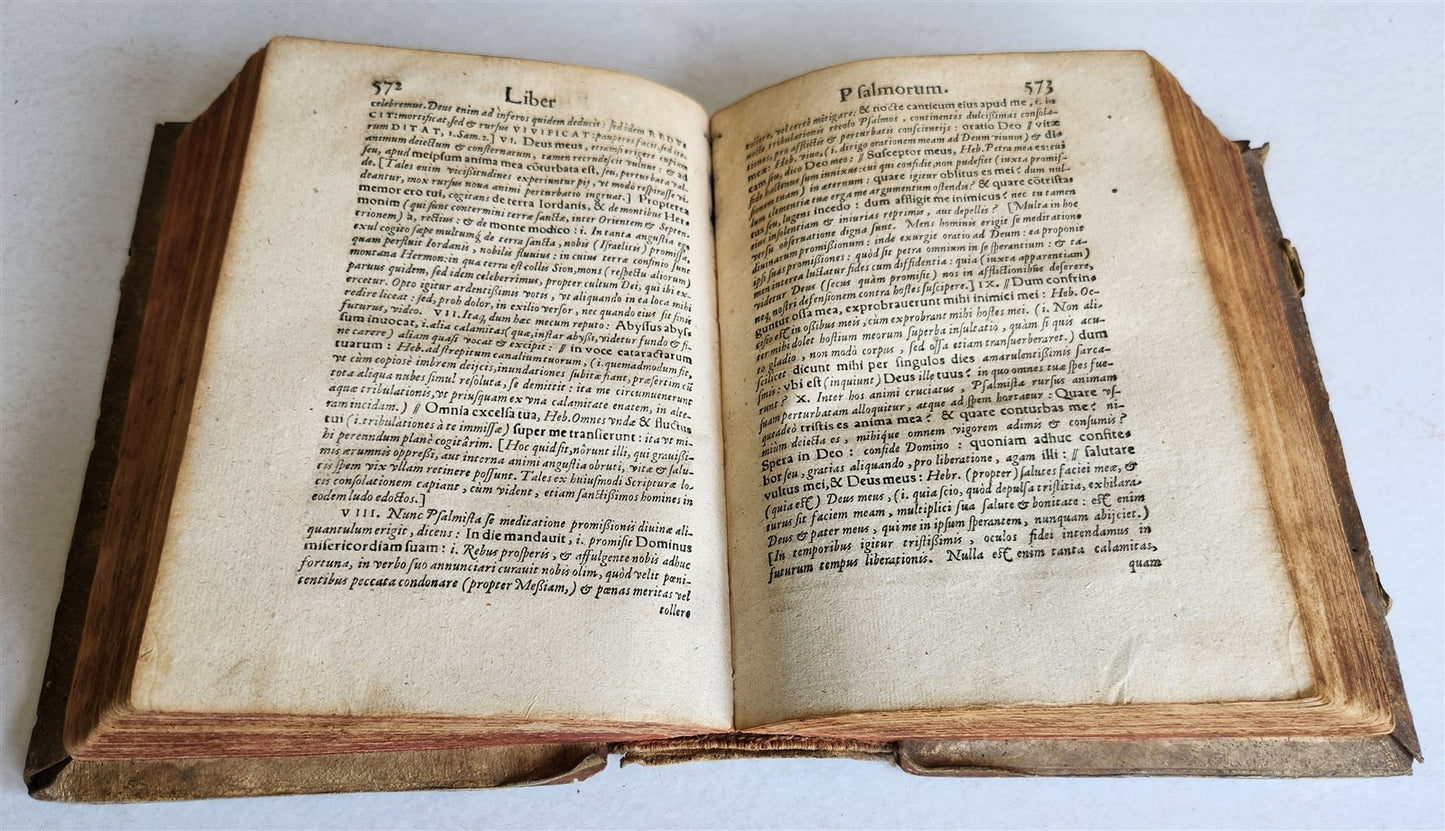 572
Liber
celebremus. Deus enim ad inferos quidem deducit: sed idem REDV
CIT: mortificat, sed & rursus VIVIFICAT: pauperes facit, sed ite-
rum DITAT, 1. Sam. 2.] VI. Deus meus, etiamsi erigere cupiam
animum deiectum & consternatum, tamen recrudescit vulnus: & ad
seu, apud meipsum anima mea cōturbata est, seu, perturbata val-
de. [Tales enim vicissitudines experiuntur pij, vt modò respirasse vi-
deantur, mox rursus noua animi perturbatio ingruat.] Propterea
memor ero tui, cogitans de terra Iordanis, & de montibus Her-
monim (qui sunt contermini terræ sanctæ, inter Orientem & Septen-
trionem) à, rectius: & de monte modico: i. In tanta angustia ego
exul cogito sæpe multumq́; de terra sancta, nobis (Israëlitis) promissa,
quam perfluit Iordanis, nobilis fluuius: in cuius terræ confinio sunt
montana Hermon: in qua terra est collis Sion, mons (respectu aliorum)
paruus quidem, sed idem celeberrimus, propter cultum Dei, qui ibi ex-
ercetur. Opto igitur ardentissimis votis, vt aliquando in ea loca mihi
redire liceat: sed, proh dolor, in exilio versor, nec quando eius sit finis
futurus, video. VII. Itaq; dum hæc mecum reputo: Abyssus abys-
sum inuocat, i. alia calamitas (quæ, instar abyssi, videtur fundo & fi-
ne carere) aliam quasi vocat & excipit: // in voce cataractarum
tuarum: Heb. ad strepitum canalium tuorum, (i. quemadmodum fit,
vt cùm copiosè imbrem deijcis, inundationes subitæ fiant, præsertim cùm
tota aliqua nubes simul resoluta, se demittit: ita me circumuenerunt
aquæ tribulationis, vt priusquam ex vna calamitate enatem, in alte-
ram incidam.) // Omnia excelsa tua, Heb. Omnes vndæ & fluctus
tui (i. tribulationes à te immissæ) super me transierunt: ita vt mi-
hi pereundum planè cogitârim. [Hoc quid sit, nôrunt illi, qui grauissi-
mis ærumnis oppressi, aut interna animi angustia obruti, vitæ & salu-
tis spem vix vllam retinere possunt. Tales ex huiusmodi Scripturæ lo-
cis consolationem capiant, cùm vident, etiam sanctissimos homines in
eodem ludo edoctos.]
VIII. Nunc Psalmista se meditatione promissionis diuinæ ali-
quantulum erigit, dicens: In die mandauit, i. promisit Dominus
misericordiam suam: i. Rebus prosperis, & affulgente nobis adhuc
fortuna, in verbo suo annunciari curauit nobis olim, quòd velit pœni-
tentibus peccata condonare (propter Messiam,) & pœnas meritas vel
tollere
Psalmorum.
573
tollere, vel certè mitigare: & nocte canticum eius apud me, i. in
nocte tribulationis recolo Psalmos, continentes dulcissimas consola-
tiones, pro afflictis & perturbatis conscientijs: oratio Deo // vitæ
meæ: Heb. viuo, (i. dirigo orationem meam ad Deum viuum) & di-
cam seu, dico Deo meo: // Susceptor meus, Heb. Petra mea es: cui
fide hactenus sum innixus: cui qui confidit, non pudefiet (iuxta promis-
sionem tuam) in æternum: quare igitur oblitus es mei? dum nul-
lum clementiæ tuæ erga me argumentum ostendis? & quare cōtrista-
tus seu, lugens incedo: dum affligit me inimicus? nec tu tamen
eius insolentiam & iniurias reprimis, aut depellis? [Multa in hoc
versu obseruatione digna sunt. Mens hominis erigit se meditatione
diuinarum promissionum: inde exurgit oratio ad Deum: ea proponit
ipsi suas promissiones: quòd sit petra omnium in se sperantium: & ta-
men interea luctatur fides cum diffidentia: quia (iuxta apparentiam)
videtur Deus (secus quàm promisit) nos in afflictionibus deserere,
neq; nostri defensionem contra hostes suscipere.] IX. // Dum confrin-
guntur ossa mea, exprobrauerunt mihi inimici mei: Heb. Oc-
cisio est in ossibus meis, cùm exprobrant mihi hostes mei. (i. Non ali-
ter mihi dolet hostium meorum superba insultatio, quàm si quis acu-
to gladio, non modò corpus, sed ossa etiam transuerberaret.) dum
scilicet dicunt mihi per singulos dies amarulentissimis sarca-
smis: vbi est (inquiunt) Deus ille tuus? in quo omnes tuæ spes fue-
runt? X. Inter hos animi cruciatus, Psalmista rursus animam
suam perturbatam alloquitur, atque ad spem hortatur: Quare vs-
queadeò tristis es anima mea? & quare conturbas me? ni-
miùm deiecta es, mihique omnem vigorem adimis & consumis?
Spera in Deo: confide Domino: quoniam adhuc confite-
bor seu, gratias aliquando, pro liberatione, agam illi: // salutare
vultus mei, & Deus meus: Hebr. (propter) salutes faciei meæ, &
(quia est) Deus meus, (i. quia scio, quòd depulsa tristitia, exhilara-
turus sit faciem meam, multiplici sua salute & bonitate: est enim
Deus & pater meus, qui me in ipsum sperantem, nunquam abijciet.)
[In temporibus igitur tristissimis, oculos fidei intendamus in
futurum tempus liberationis. Nulla est enim tanta calamitas,
quam